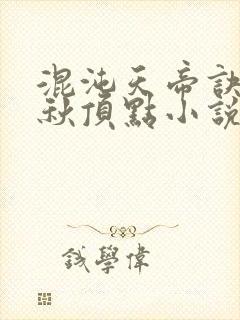 混沌天帝訣
秋頂點小說
錢學偉